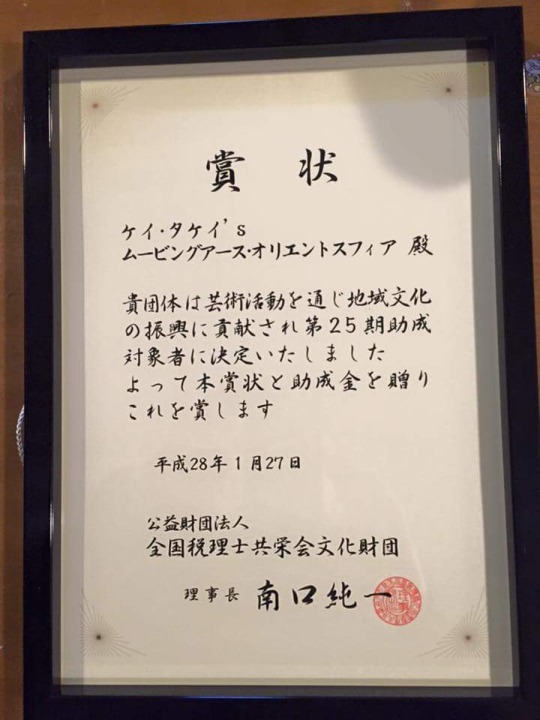 賞状
ケイ・タケイ's
ムービングアース・オリエントスフィア 殿
貴団体は芸術活動を通じ地域文化
の振興に貢献され第25期助成
対象者に決定いたしました
よって本賞状と助成金を贈り
これを賞します
平成28年1月27日
公益財団法人
全国税理士共栄会文化財団
理事長 南口純一